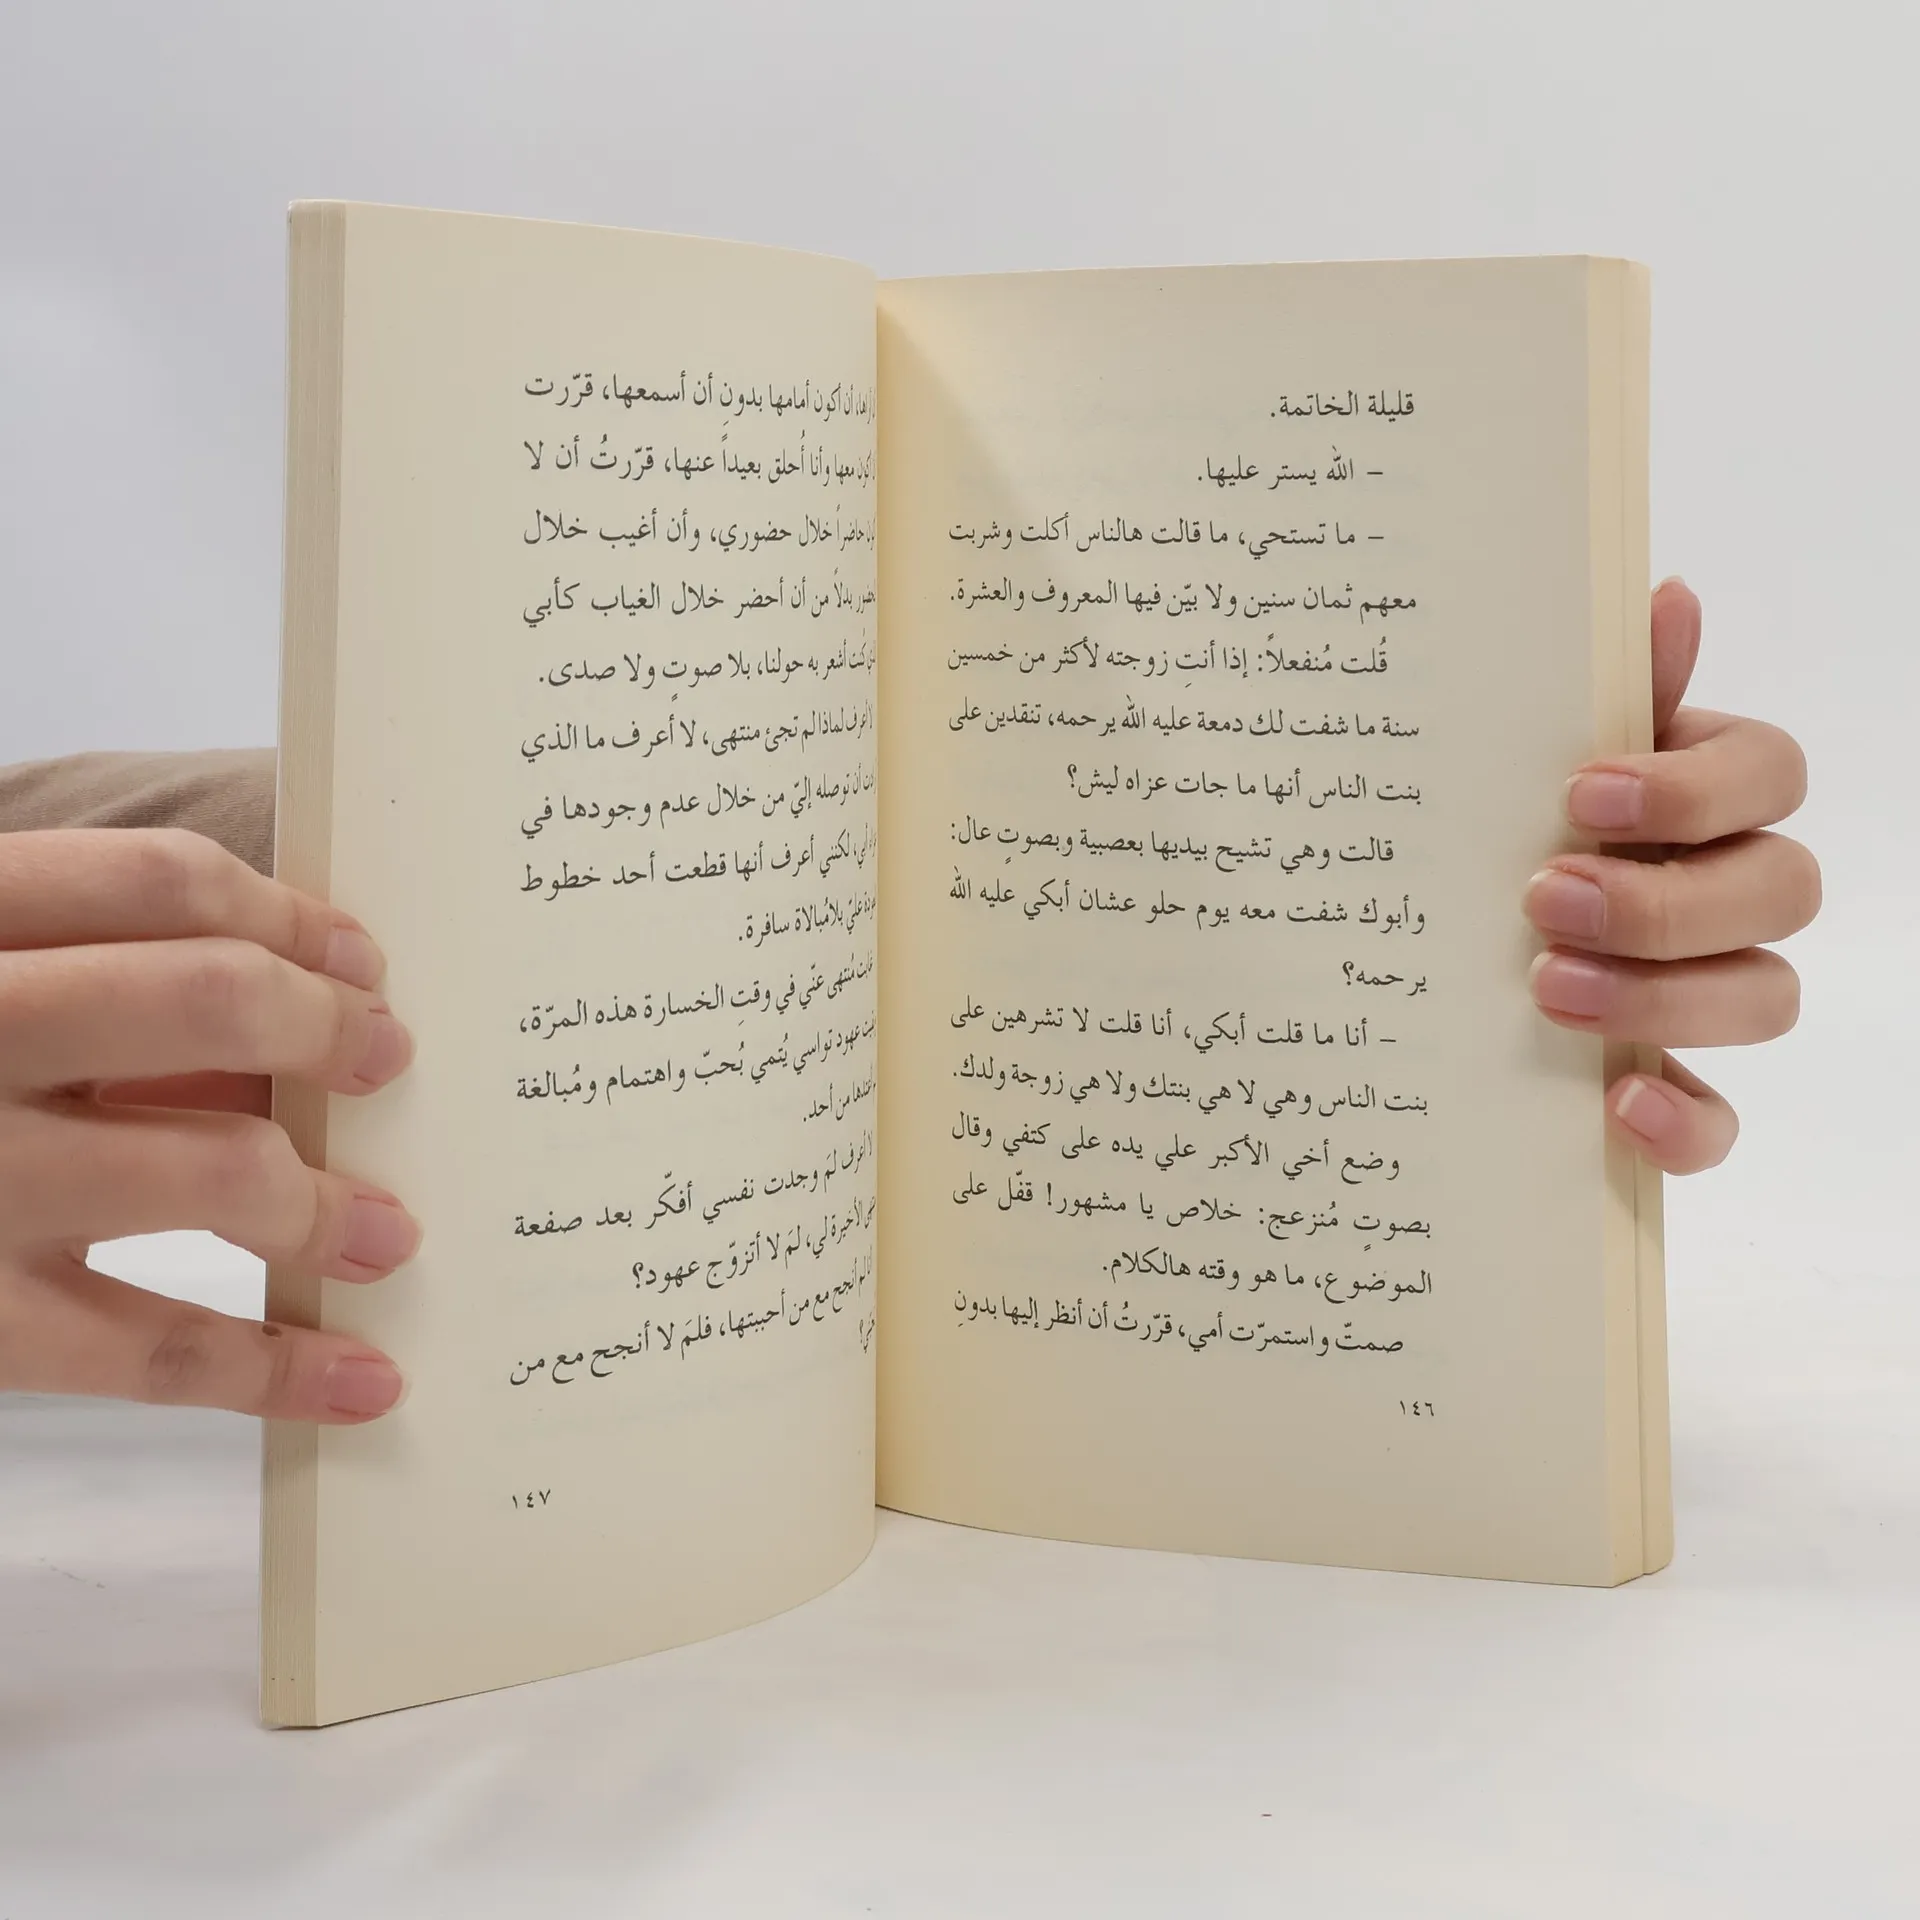 قليلة الخاتمة.
– الله يستر عليها.
– ما تستحي، ما قالت هالناس أكلت وشربت
معهم ثمان سنين ولا بيّن فيها المعروف والعشرة.
قُلت مُنفعلاً: إذا أنتِ زوجته لأكثر من خمسين
سنة ما شفت لك دمعة عليه الله يرحمه، تنقدين على
بنت الناس أنها ما جات عزاه ليش؟
قالت وهي تشيح بيديها بعصبية وبصوتٍ عال:
وأبوك شفت معه يوم حلو عشان أبكي عليه الله
يرحمه؟
– أنا ما قلت أبكي، أنا قلت لا تشرهين على
بنت الناس وهي لا هي بنتك ولا هي زوجة ولدك.
وضع أخي الأكبر علي يده على كتفي وقال
بصوتٍ مُنزعج: خلاص يا مشهور! قفّل على
الموضوع، ما هو وقته هالكلام.
صمتّ واستمرّت أمي، قرّرتُ أن أنظر إليها بدونِ
١٤٦
أن أكون أمامها بدونِ أن أسمعها، قرّرت
معها وأنا أُحلق بعيداً عنها، قرّرتُ أن لا
حاضراً خلال حضوري، وأن أغيب خلال
بدلاً من أن أحضر خلال الغياب كأبي
كُنت أشعر به حولنا، بلا صوتٍ ولا صدى.
لا أعرف لماذا لم تجئ منتهى، لا أعرف ما الذي
أن توصله إليّ من خلال عدم وجودها في
لكنني أعرف أنها قطعت أحد خطوط
عليّ بلامُبالاة سافرة.
غابت مُنتهى عنّي في وقتِ الخسارة هذه المرّة،
عهود تواسي يُتمي بُحبّ واهتمام ومُبالغة
من أحد.
لا أعرف لمَ وجدت نفسي أفكّر بعد صفعة
الأخيرة لي، لمَ لا أتزوّج عهود؟
لم أنجح مع من أحببتها، فلمَ لا أنجح مع من
١٤٧